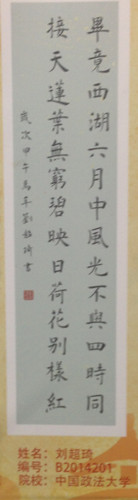 畢竟西湖六月中風光不與四時同
接天蓮葉無窮碧映日荷花别樣紅
歲次甲午馬年劉超琦書
姓名：刘超琦
编号：B2014201
院校：中国政法大学